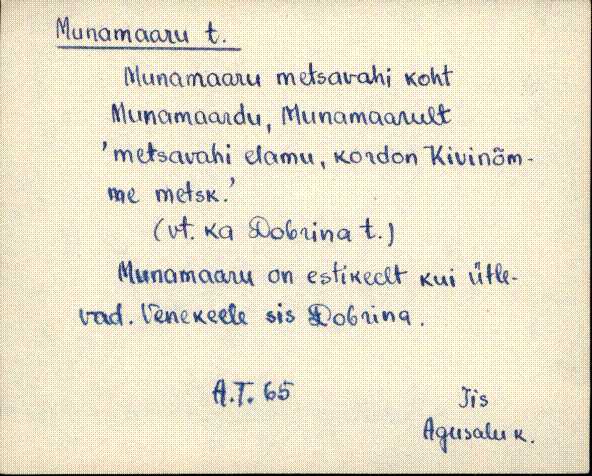 Munamaaru t.
Munamaaru metsavahi koht
Munamaardu, Munamaarult
'metsavahi elamu, kordon Kivinõm-
me metsk.'
(vt. ka Dobrina t.)
Munamaaru on estikeelt kui ütle-
vad. Venekeele sis Dobrina.
A.T. 65
Jis
Agusalu k.